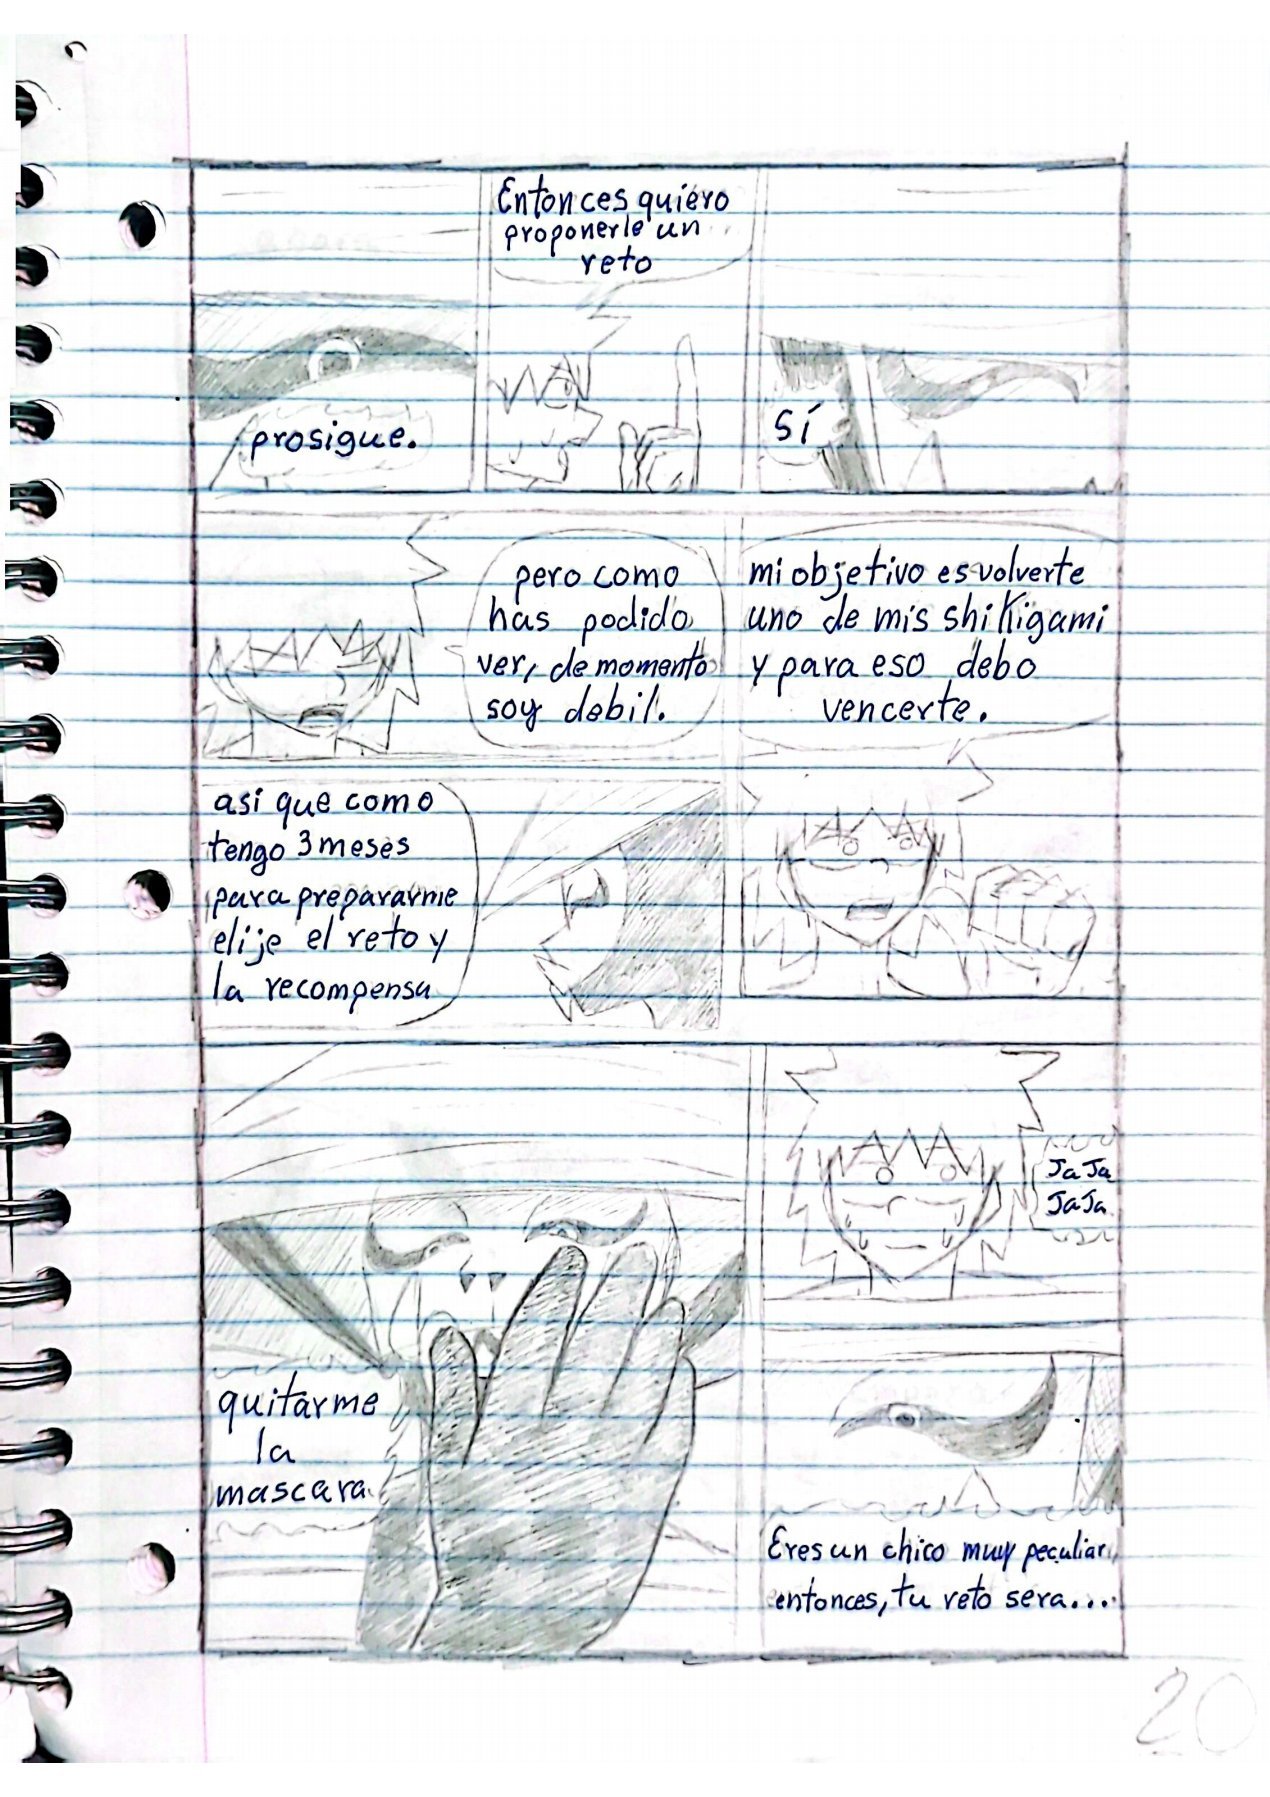 Sí
Entonces quiero
proponerle un
reto
prosigue.
mi objetivo es volverte
uno de mis shikigami
y para eso debo
vencerte.
pero como
has podido
ver, de momento
soy debil.
asi que como
tengo 3 meses
para prepararme
elije el reto y
la recompensa
JaJa
JaJa
Eres un chico muy peculiar
entonces, tu reto sera...
quitarme
la
mascara.
20